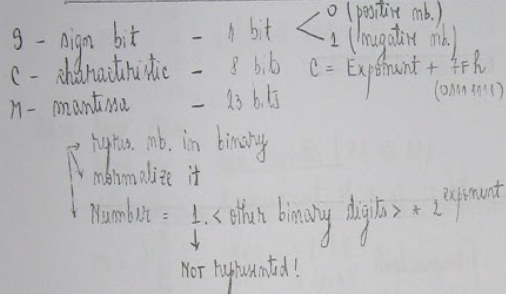 S - sign bit - 1 bit < 0 (positive nb.)
1 (negative nb.)
C - characteristic - 8 bits C = Exponent + 7Fh
(01111111)
M - mantissa - 23 bits
→ repres. nb. in binary
↘ normalize it
↓ Number = 1.<other binary digits> * 2^exponent
↓
NOT represented!